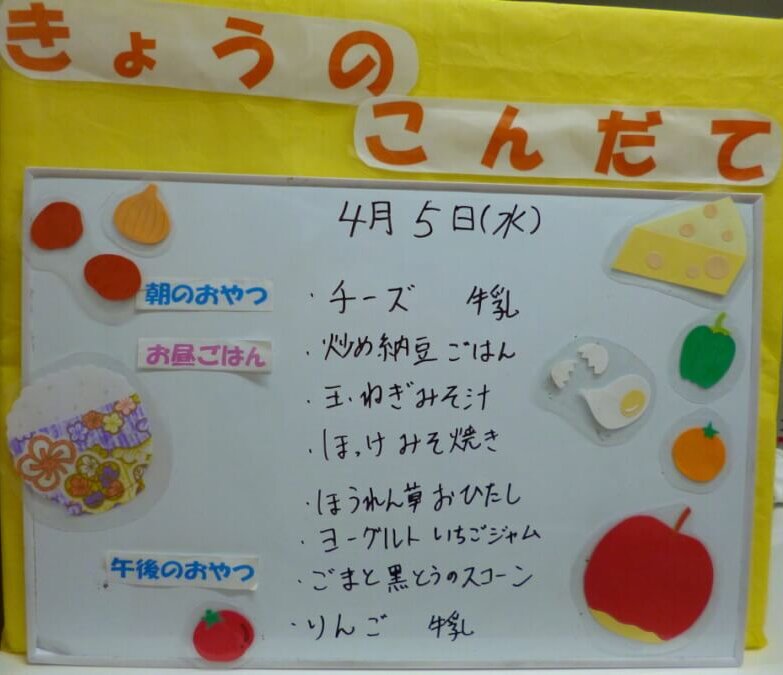 きょうの
こんだて
4月5日(水)
朝のおやつ ・チーズ 牛乳
お昼ごはん ・炒め納豆ごはん
・玉ねぎみそ汁
・ほっけみそ焼き
・ほうれん草おひたし
・ヨーグルトいちごジャム
午後のおやつ ・ごまと黒とうのスコーン
・りんご 牛乳